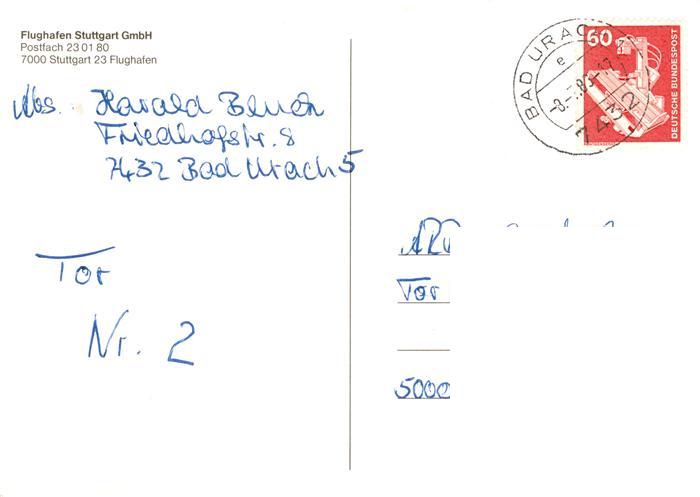 Flughafen Stuttgart GmbH
Postfach 23 01 80
7000 Stuttgart 23 Flughafen
Abs. Harald
Friedhofstr. 8
7432 Bad Urach 5
Tor
Nr. 2
BAD URACH
e
7432
60
DEUTSCHE BUNDESPOST
Tor
5000